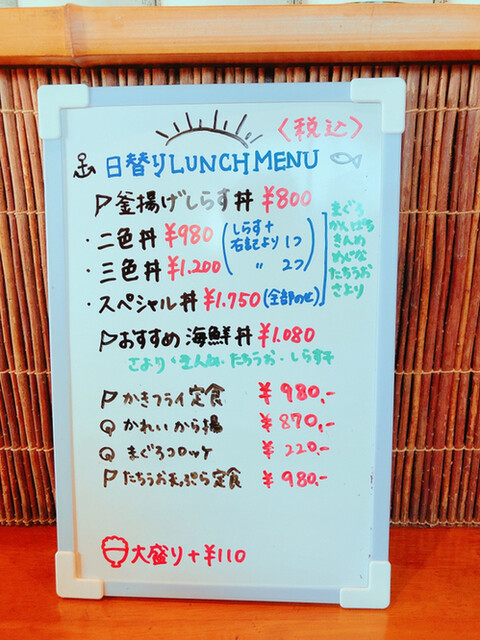 〈税込〉
日替りLUNCH MENU
釜揚げしらす丼 ¥800
・二色丼 ¥980 (しらす+右記より 1つ
・三色丼 ¥1.200 〃 2つ)
・スペシャル丼 ¥1.750 (全部のせ)
まぐろ
かんぱち
きんめ
めじな
たちうお
さより
おすすめ 海鮮丼 ¥1.080
さより・きんめ・たちうお・しらす
かきフライ定食 ¥980.-
かれいから揚 ¥870.-
まぐろコロッケ ¥220.-
たちうお天ぷら定食 ¥980.-
大盛り+¥110